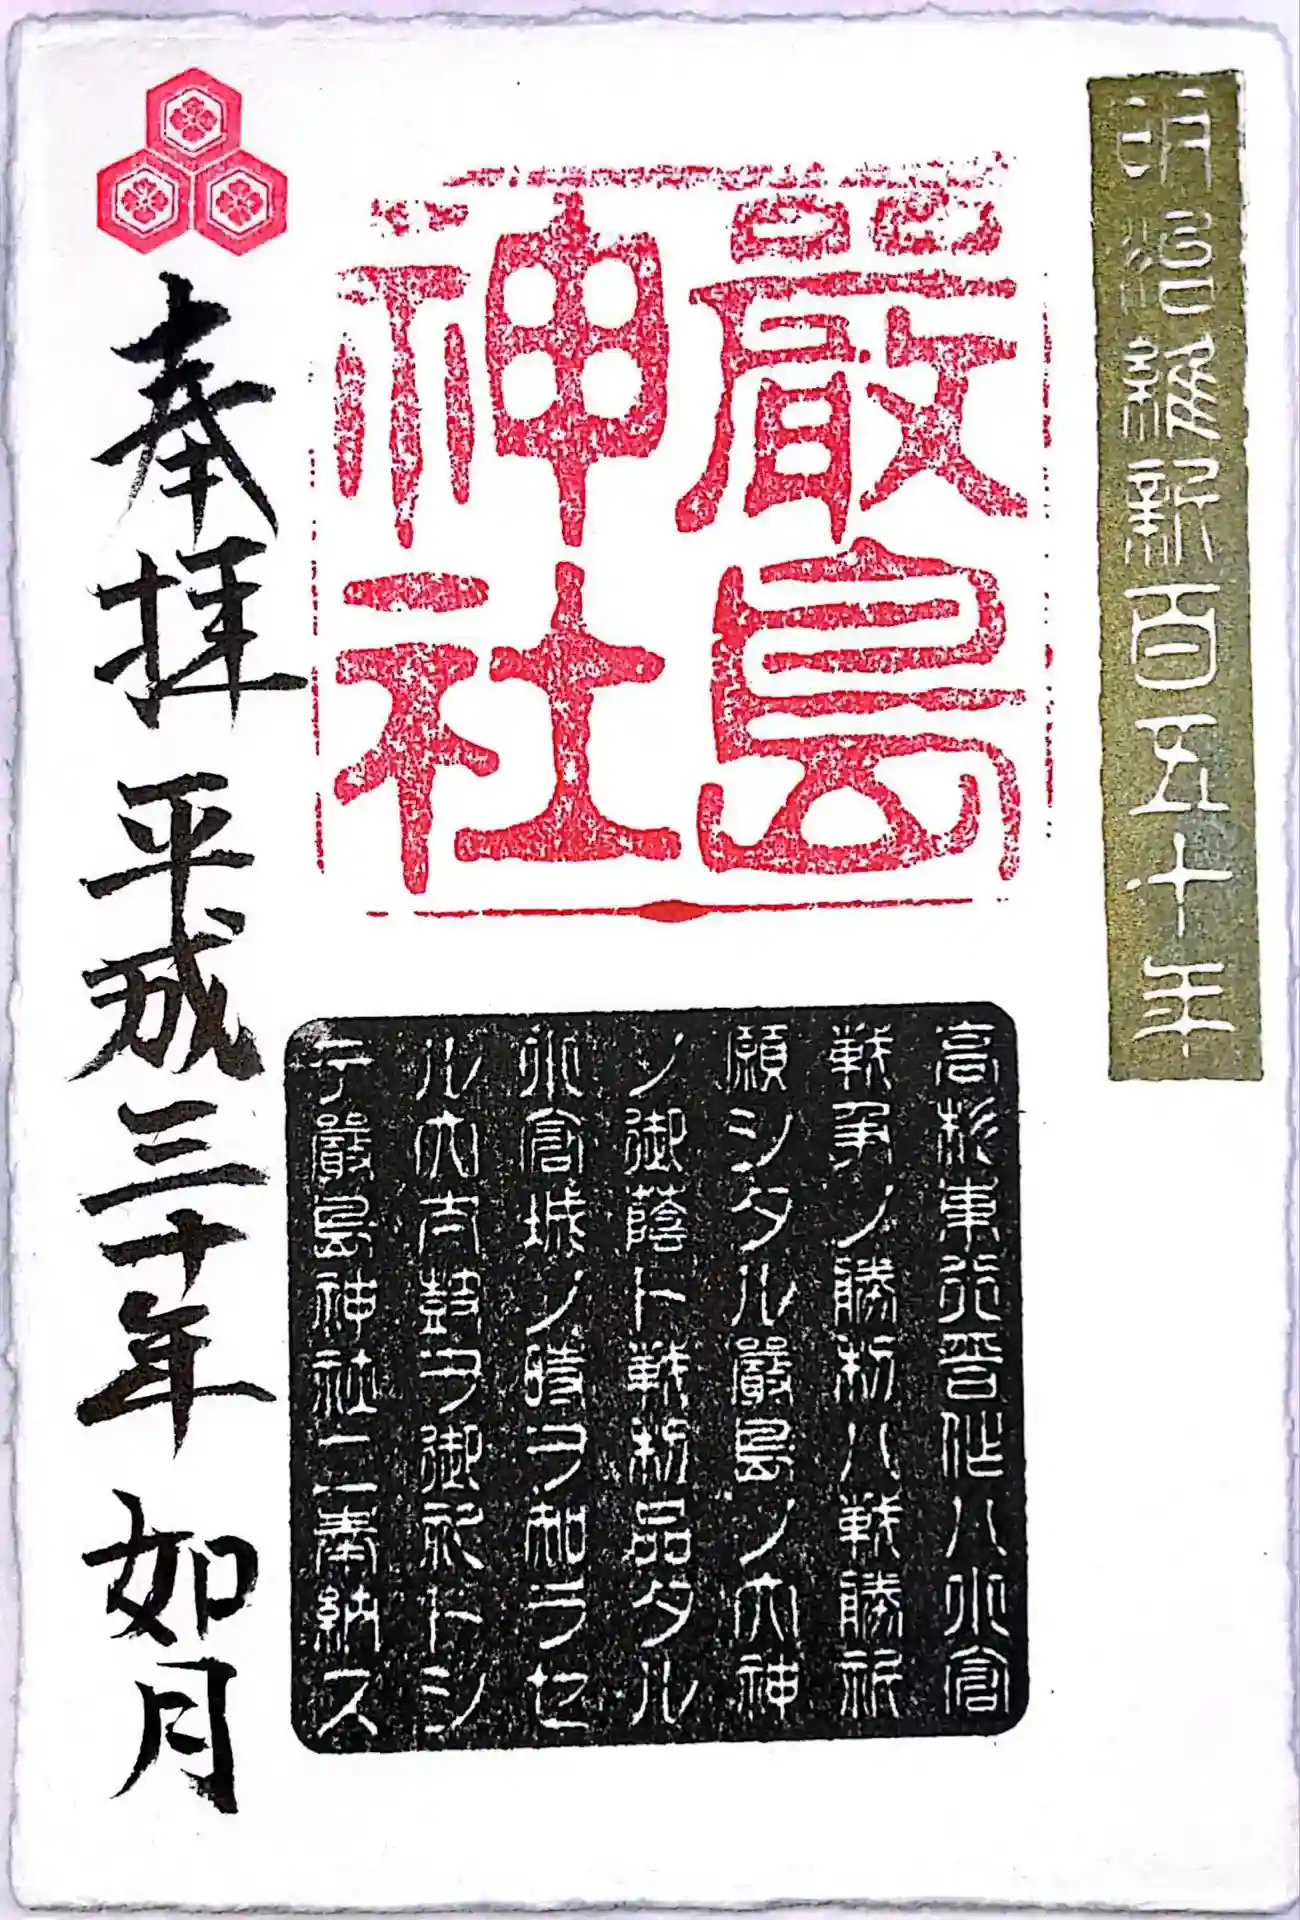 明治維新百五十年
嚴島
神社
高杉東行晋作ハ小倉
戦争ノ勝利ハ戦勝祈
願シタル嚴島ノ大神
ノ御蔭ト戦利品タル
小倉城ノ時ヲ知ラセ
ル大太鼓ヲ御礼トシ
テ嚴島神社ニ奉納ス
奉拝 平成三十年 如月